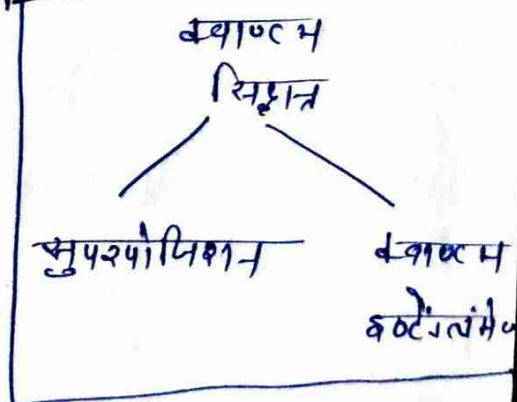 क्वाण्टम
सिद्धान्त
सुपरपोजिशन
क्वाण्टम
इण्टेंगलंमेण